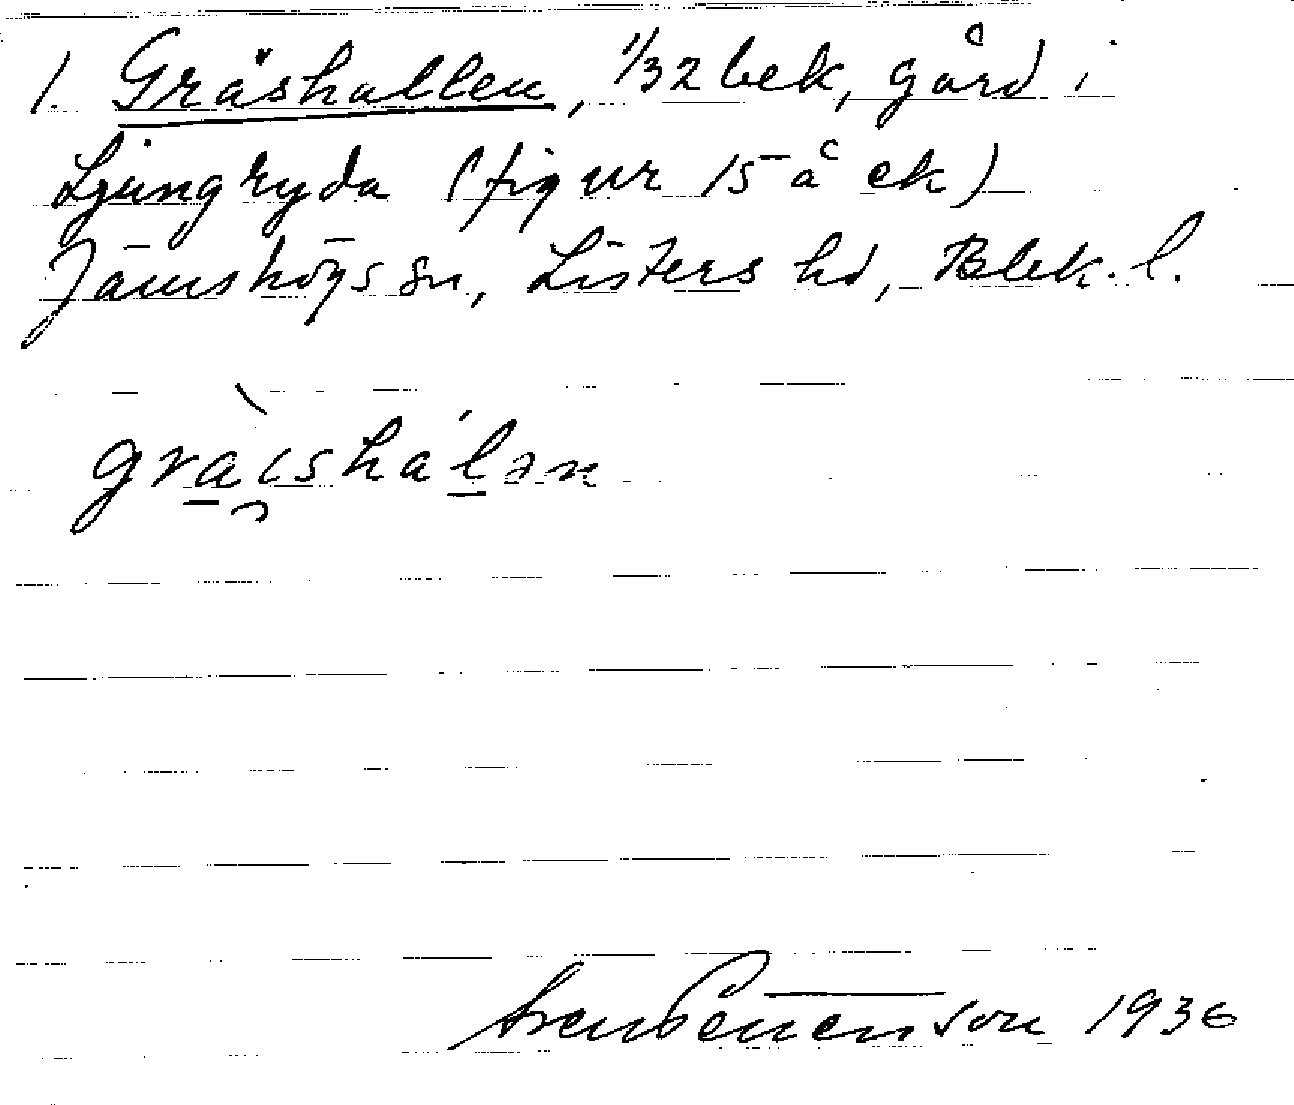 1. Gräshallen, 1/32 bek, gård i
Ljungryda (figur 15 å ek)
Jämshögs sn, Listers hd, Blek. l.
gräi̯shálən
Sven Benson 1936